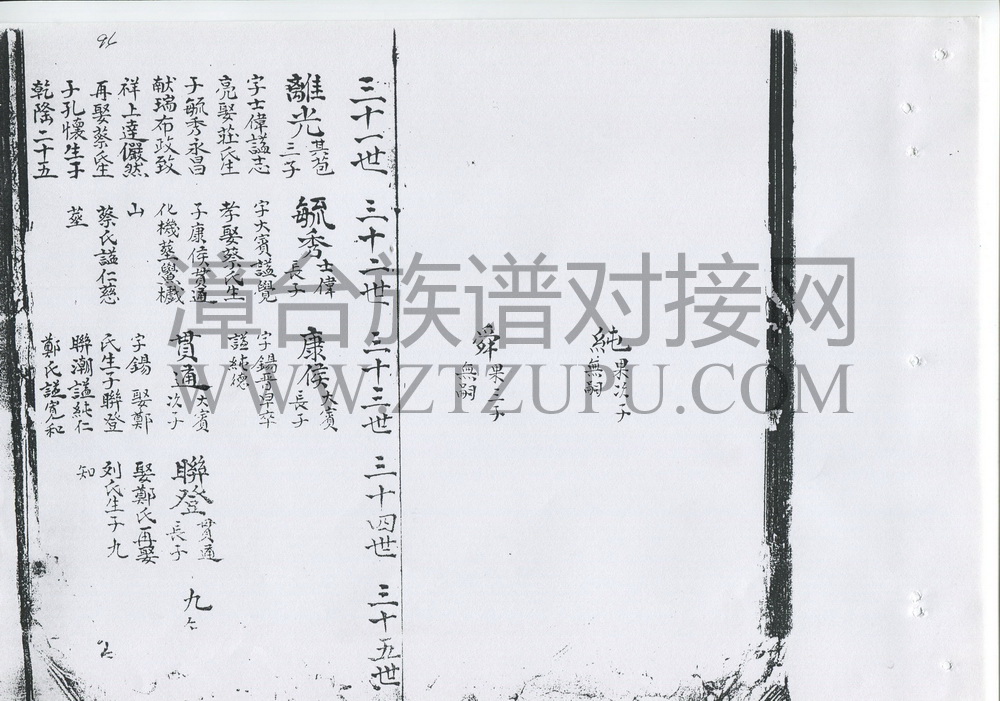 96
純 果次子
無嗣
舜 果三子
無嗣
三十一世
離光 其苞
三子
字士偉諡志
亮娶莊氏生
子毓秀永昌
献瑞布政致
祥上達儼然
再娶蔡氏生
子孔懷生于
乾隆二十五
三十二世
毓秀 士偉
長子
字大賓諡覺
孝娶蔡氏生
子康侯貫通
化機塟鷽檨
山
蔡氏諡仁慈
塟
三十三世
康侯 大賓
長子
字錫晋早卒
諡純德
貫通 大賓
次子
字錫 娶鄭
氏生子聯登
聯潮諡純仁
鄭氏諡寬和
三十四世
聯登 貫通
長子
娶鄭氏再娶
刘氏生子九
知
三十五世
九
漳台族谱对接网
WWW.ZTZUPU.COM